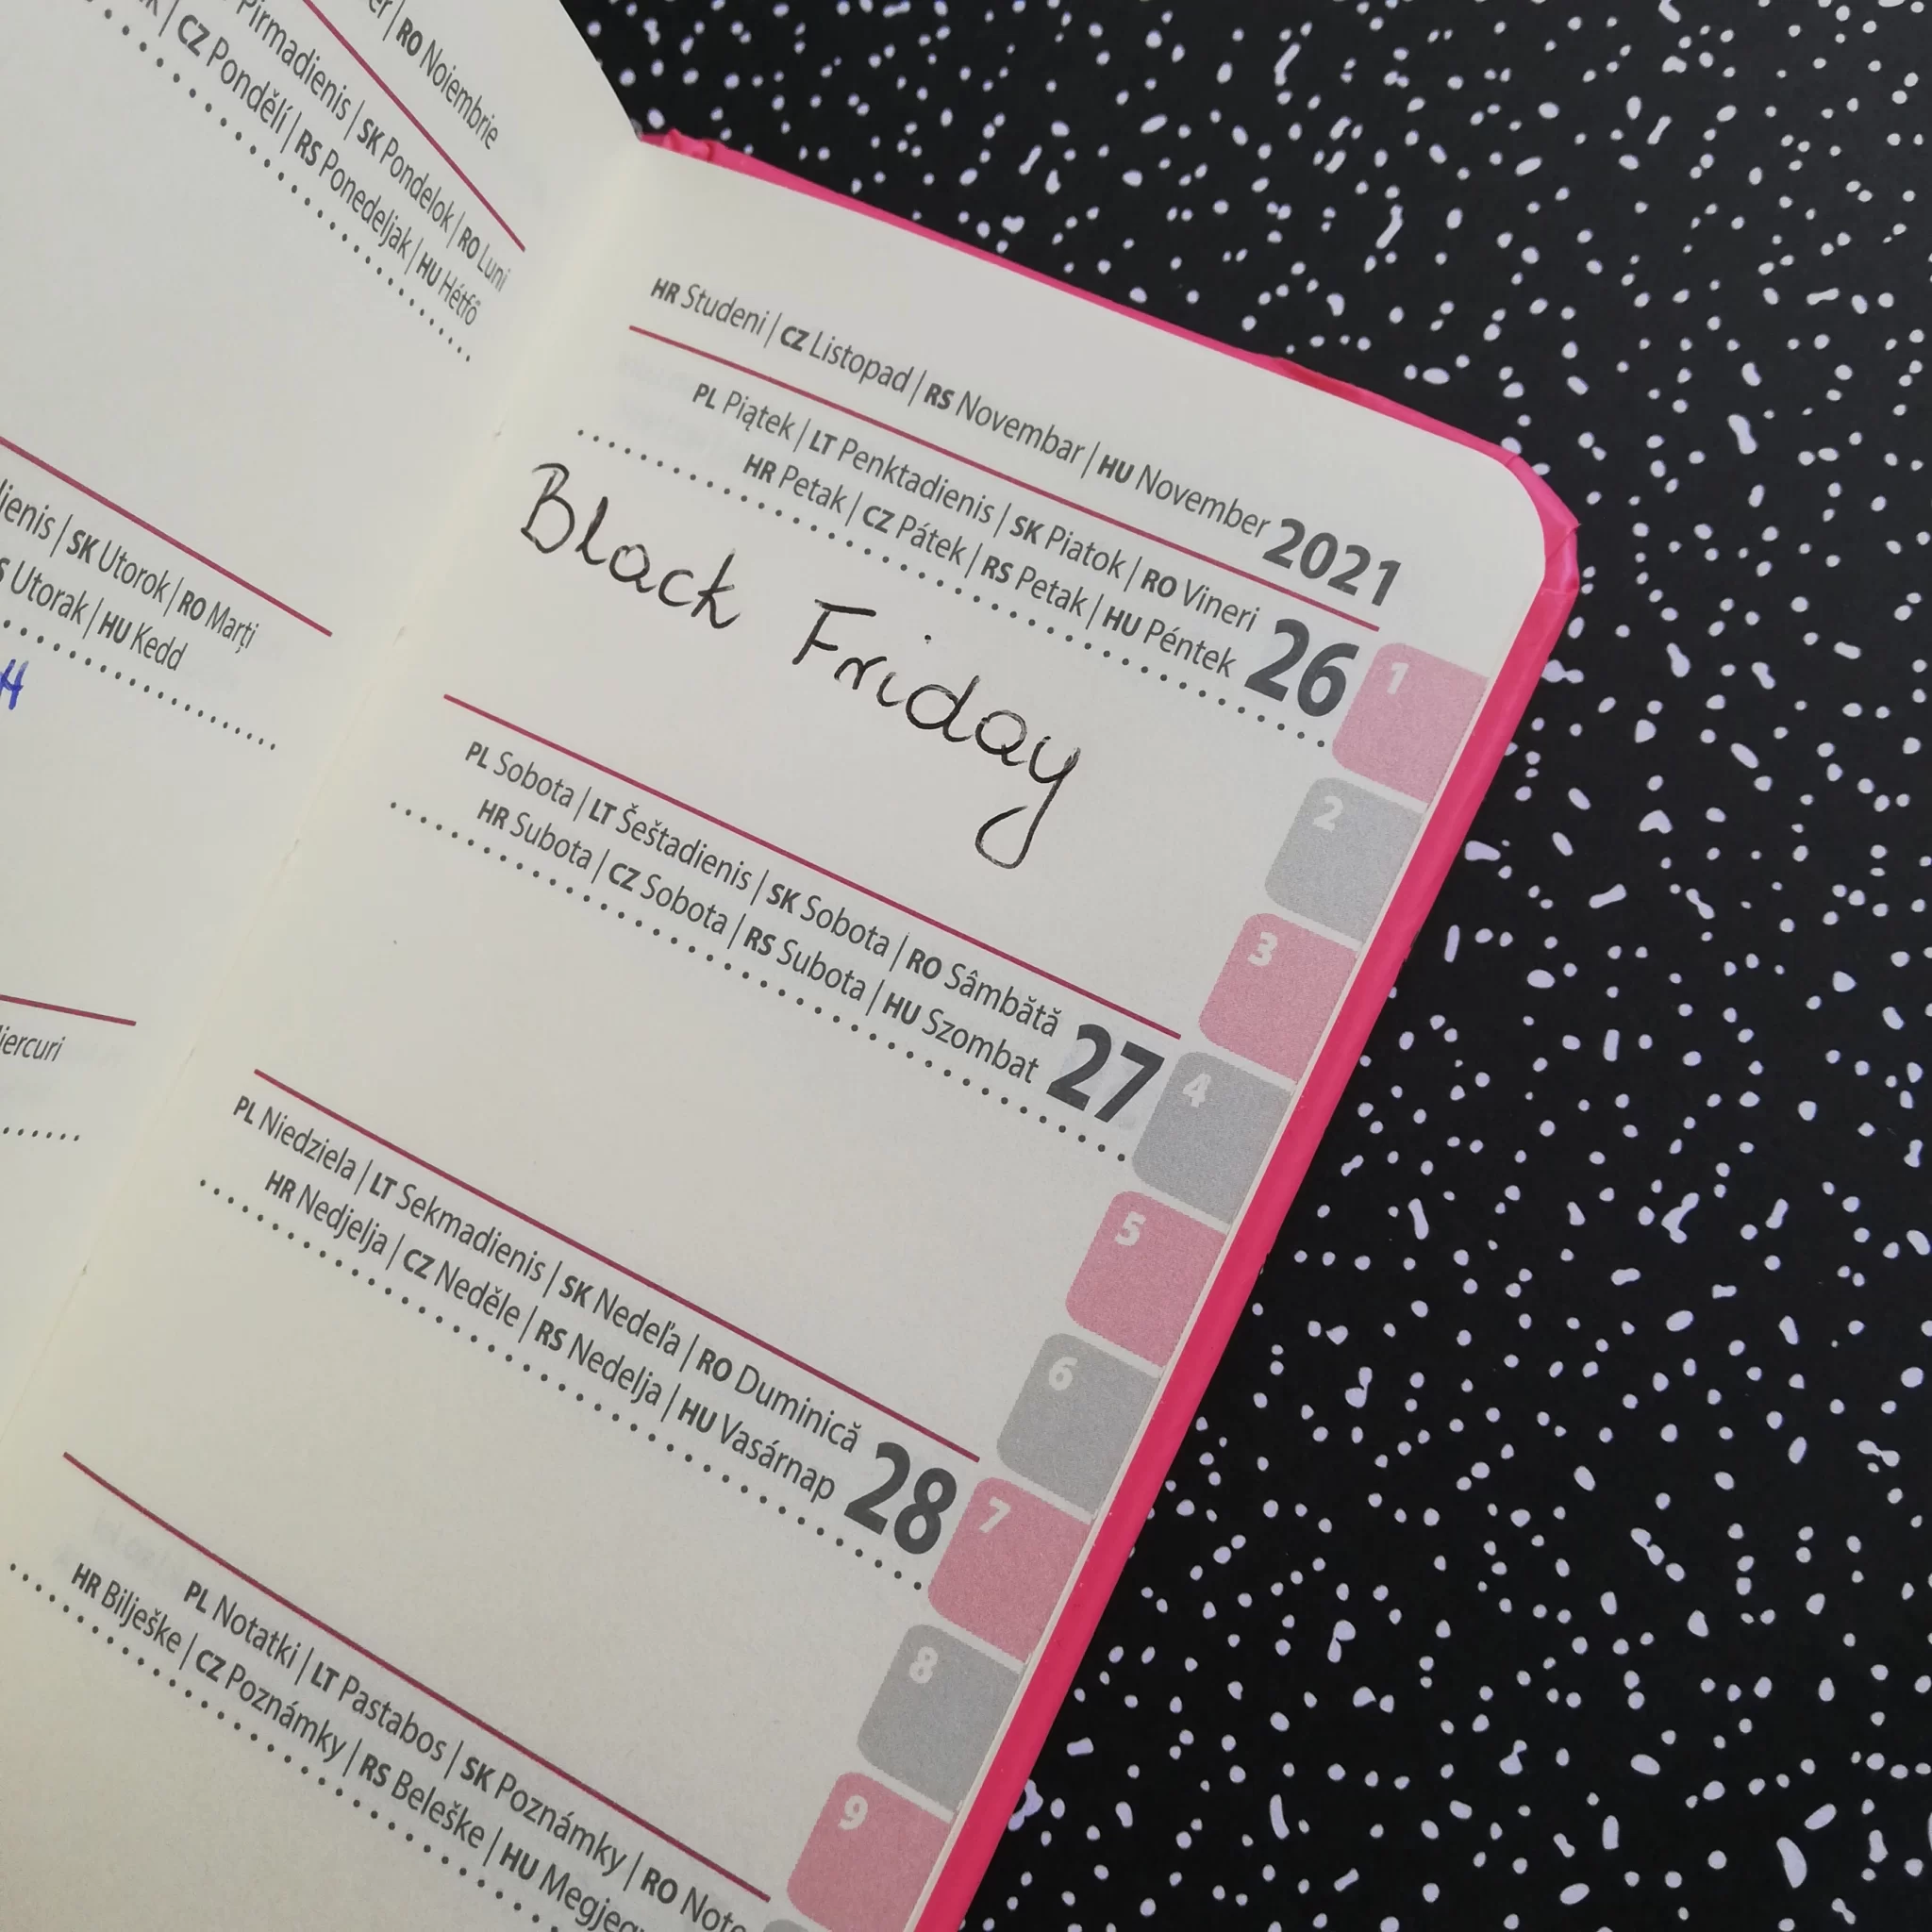 RO Noiembrie
Pirmadienis | SK Pondelok | RO Luni
CZ Pondělí | RS Ponedeljak | HU Hétfő
SK Utorok | RO Marți
Utorak | HU Kedd
HR Studeni | CZ Listopad | RS Novembar | HU November 2021
PL Piątek | LT Penktadienis | SK Piatok | RO Vineri
HR Petak | CZ Pátek | RS Petak | HU Péntek 26
Black Friday
PL Sobota | LT Šeštadienis | SK Sobota | RO Sâmbătă
HR Subota | CZ Sobota | RS Subota | HU Szombat 27
PL Niedziela | LT Sekmadienis | SK Nedeľa | RO Duminică
HR Nedjelja | CZ Neděle | RS Nedelja | HU Vasárnap 28
PL Notatki | LT Pastabos | SK Poznámky | RO Note
HR Bilješke | CZ Poznámky | RS Beleške | HU
1
2
3
4
5
6
7
8
9